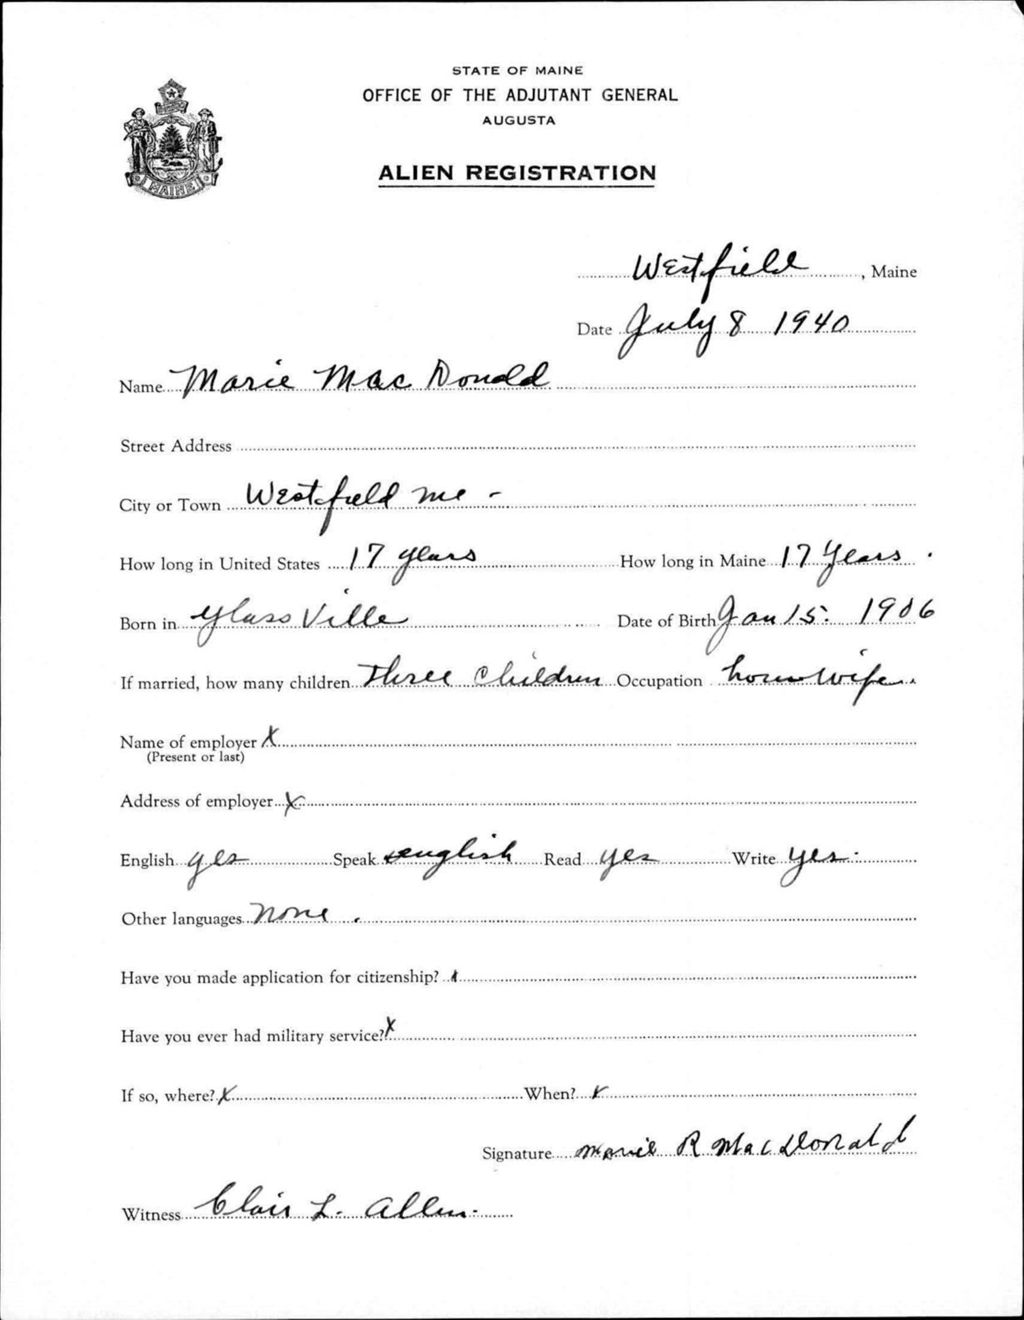 STATE OF MAINE
OFFICE OF THE ADJUTANT GENERAL
AUGUSTA
ALIEN REGISTRATION
MAINE
Westfield, Maine
Date July 8 1940
Name Marie MacDonald
Street Address
City or Town Westfield Me -
How long in United States 17 years How long in Maine 17 Years.
Born in Glassville Date of Birth Jan 15. 1906
If married, how many children three children Occupation housewife.
Name of employer X
(Present or last)
Address of employer X
English yes Speak english Read yes Write yes.
Other languages none.
Have you made application for citizenship? x
Have you ever had military service? X
If so, where? X When? X
Signature Marie R MacDonald
Witness Clair L. Allen.